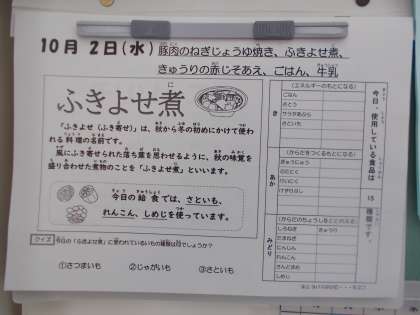 10月 2日(水) 豚肉のねぎじょうゆ焼き、ふきよせ煮、
きゅうりの赤じそあえ、ごはん、牛乳
ふきよせ煮
「ふきよせ（ふき寄せ）」は、秋から冬の初めにかけて使わ
れる料理の名前です。
風にふき寄せられた落ち葉を思わせるように、秋の味覚を
盛り合わせた煮物のことを「ふきよせ煮」といいます。
今日の給食では、さといも、
れんこん、しめじを使っています。
クイズ 今日の「ふきよせ煮」に使われているいもの種類は何でしょうか？
①さつまいも ②じゃがいも ③さといも
今日、使用している食品は
15
種類です。
き
(エネルギーのもとになる)
ごはん
さとう
サラダあぶら
さといも
あか
(からだをつくるもとになる)
ぎゅうにゅう
ぶたにく
とりにく
けずりぶし
みどり
(からだのちょうしをととのえる)
しろねぎ きゅうり
たまねぎ
にんじん
れんこん
さんどまめ
しめじ